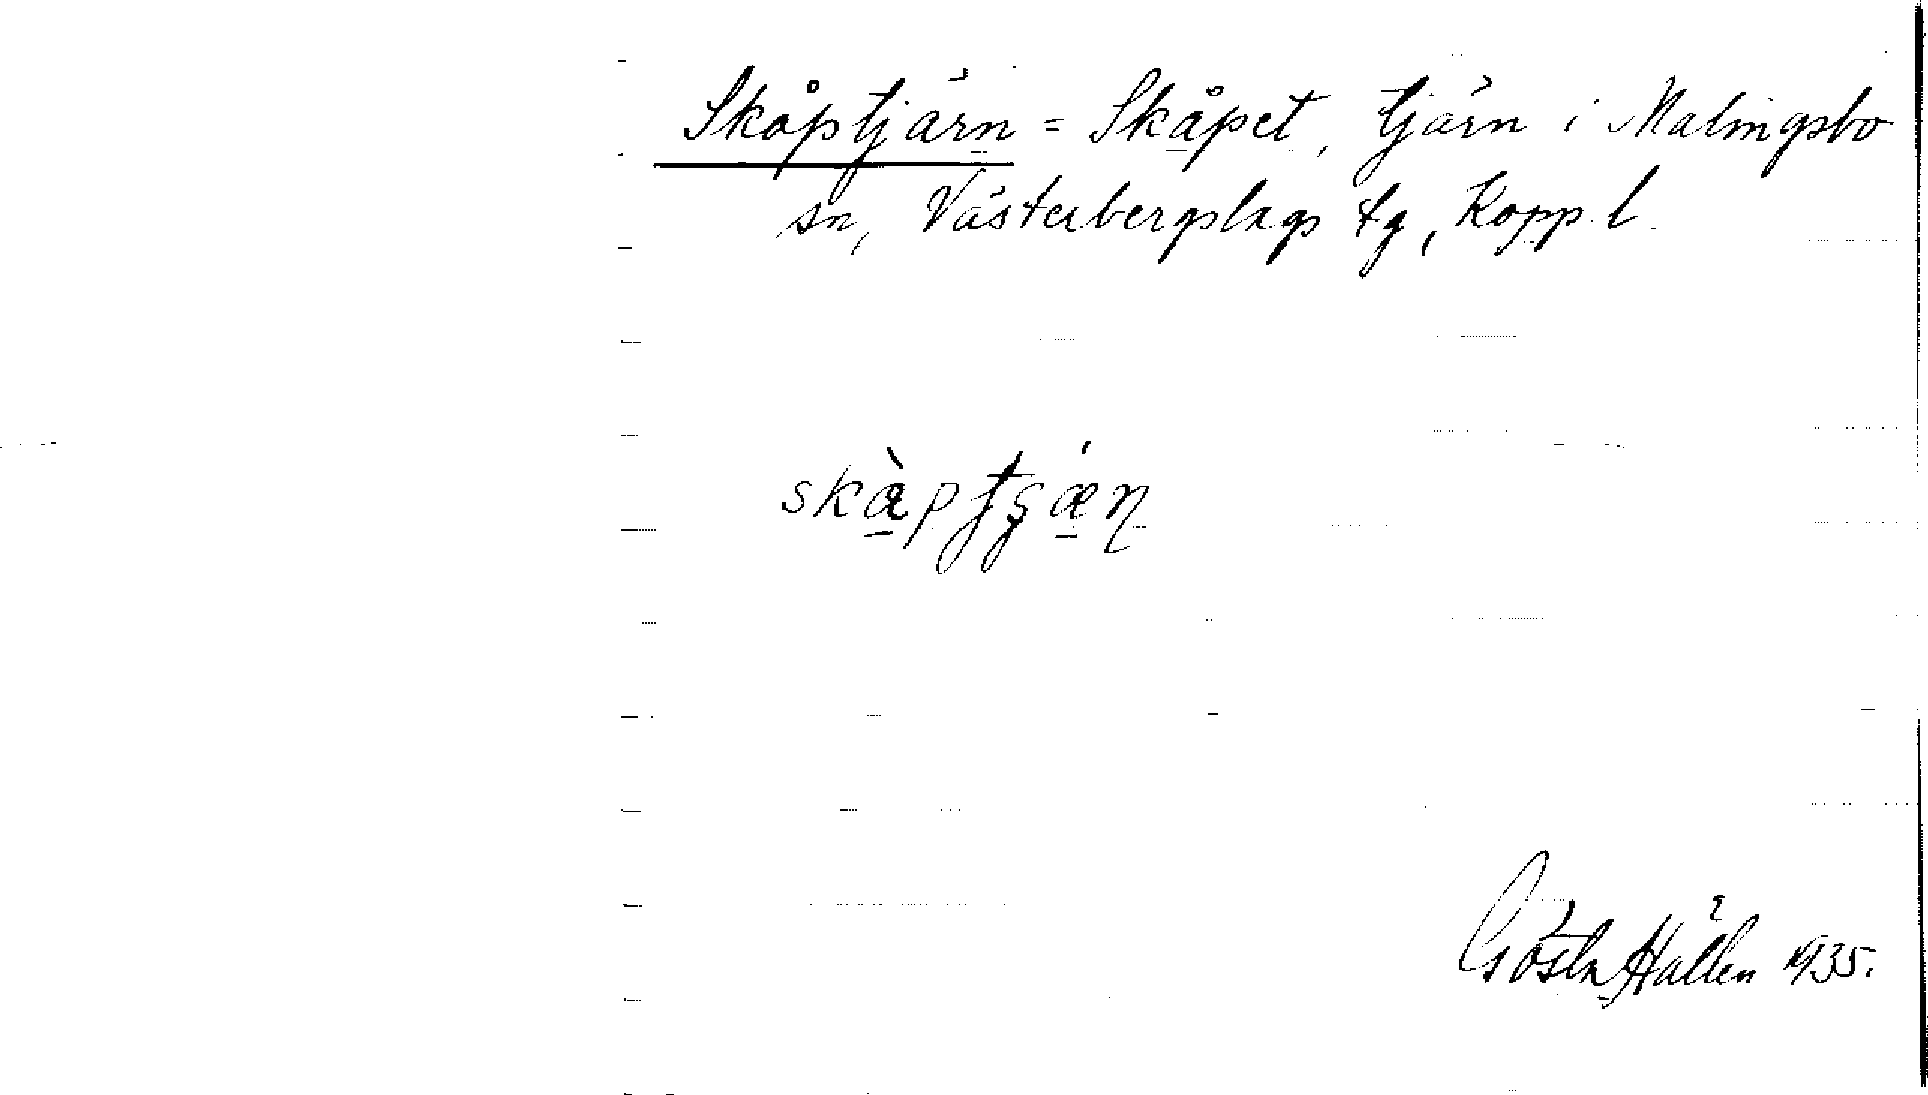 Skåptjärn = Skåpet, tjärn i Malingsbo
sn, Västerbergslags tg, Kopp. l.
skæ̀ptʂǽɳ
Gösta Hallén 1935.